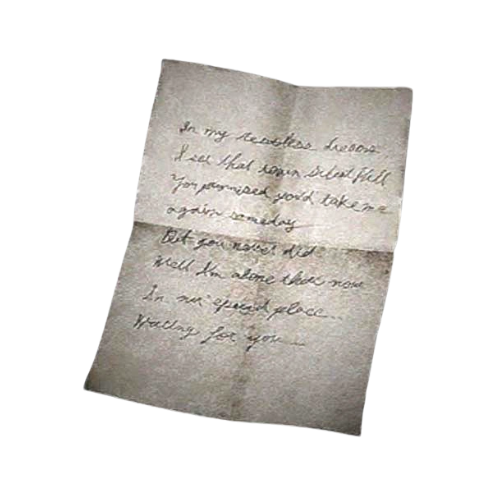 In my restless dreams
I see that town Silent Hill
You promised you'd take me
again someday
But you never did
Well I'm alone there now
In our special place...
Waiting for you...